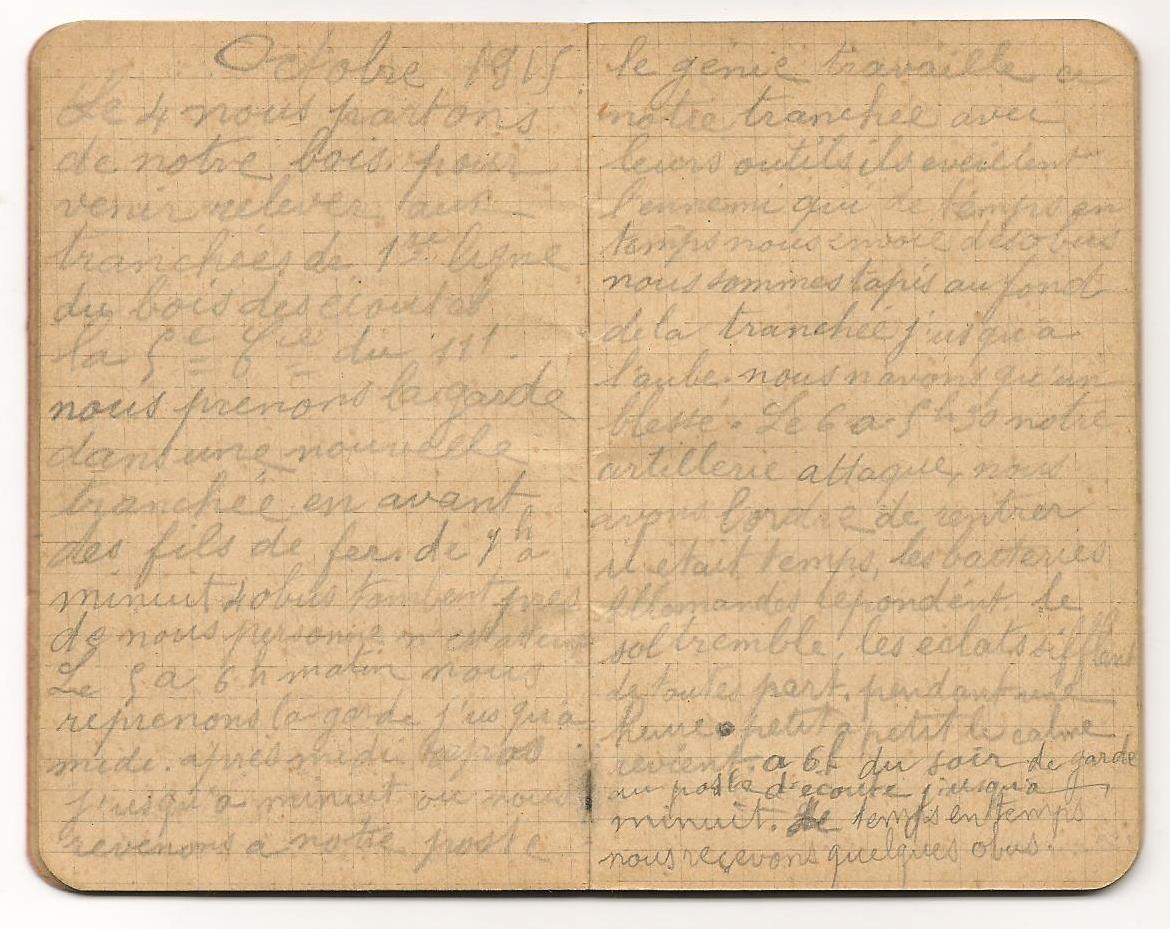 Octobre 1915
Le 4 nous partons
de notre bois pour
venir relever aux
tranchées de 1re ligne
du bois des
la 5e Cie du 111.
nous prenons la garde
dans une nouvelle
tranchée en avant
des fils de fer. de 7h a
minuit 4 obus tombent près
de nous personne n'est atteint
Le 5 a 6h matin nous
reprenons la garde j'usqu'a
midi. apres midi repos
j'usqu'a minuit ou nous
revenons a notre poste
le génie travaille a
notre tranchée avec
leurs outils ils eveillent
l'ennemi qui de temps en
temps nous envoie des obus
nous sommes tapis au fond
de la tranchée j'usqu'a
l'aube. nous n'avons qu'un
blessé. Le 6 a 5h30 notre
artillerie attaque, nous
avons l'ordre de rentrer
il etait temps, les batteries
allemandes repondent. le
sol tremble, les eclats sifflent
de toutes part. pendant une
heure. petit a petit le calme
revient. a 6h du soir de garde
au poste d'ecoute j'usqu'a
minuit. De temps en temps
nous reçevons quelques obus.